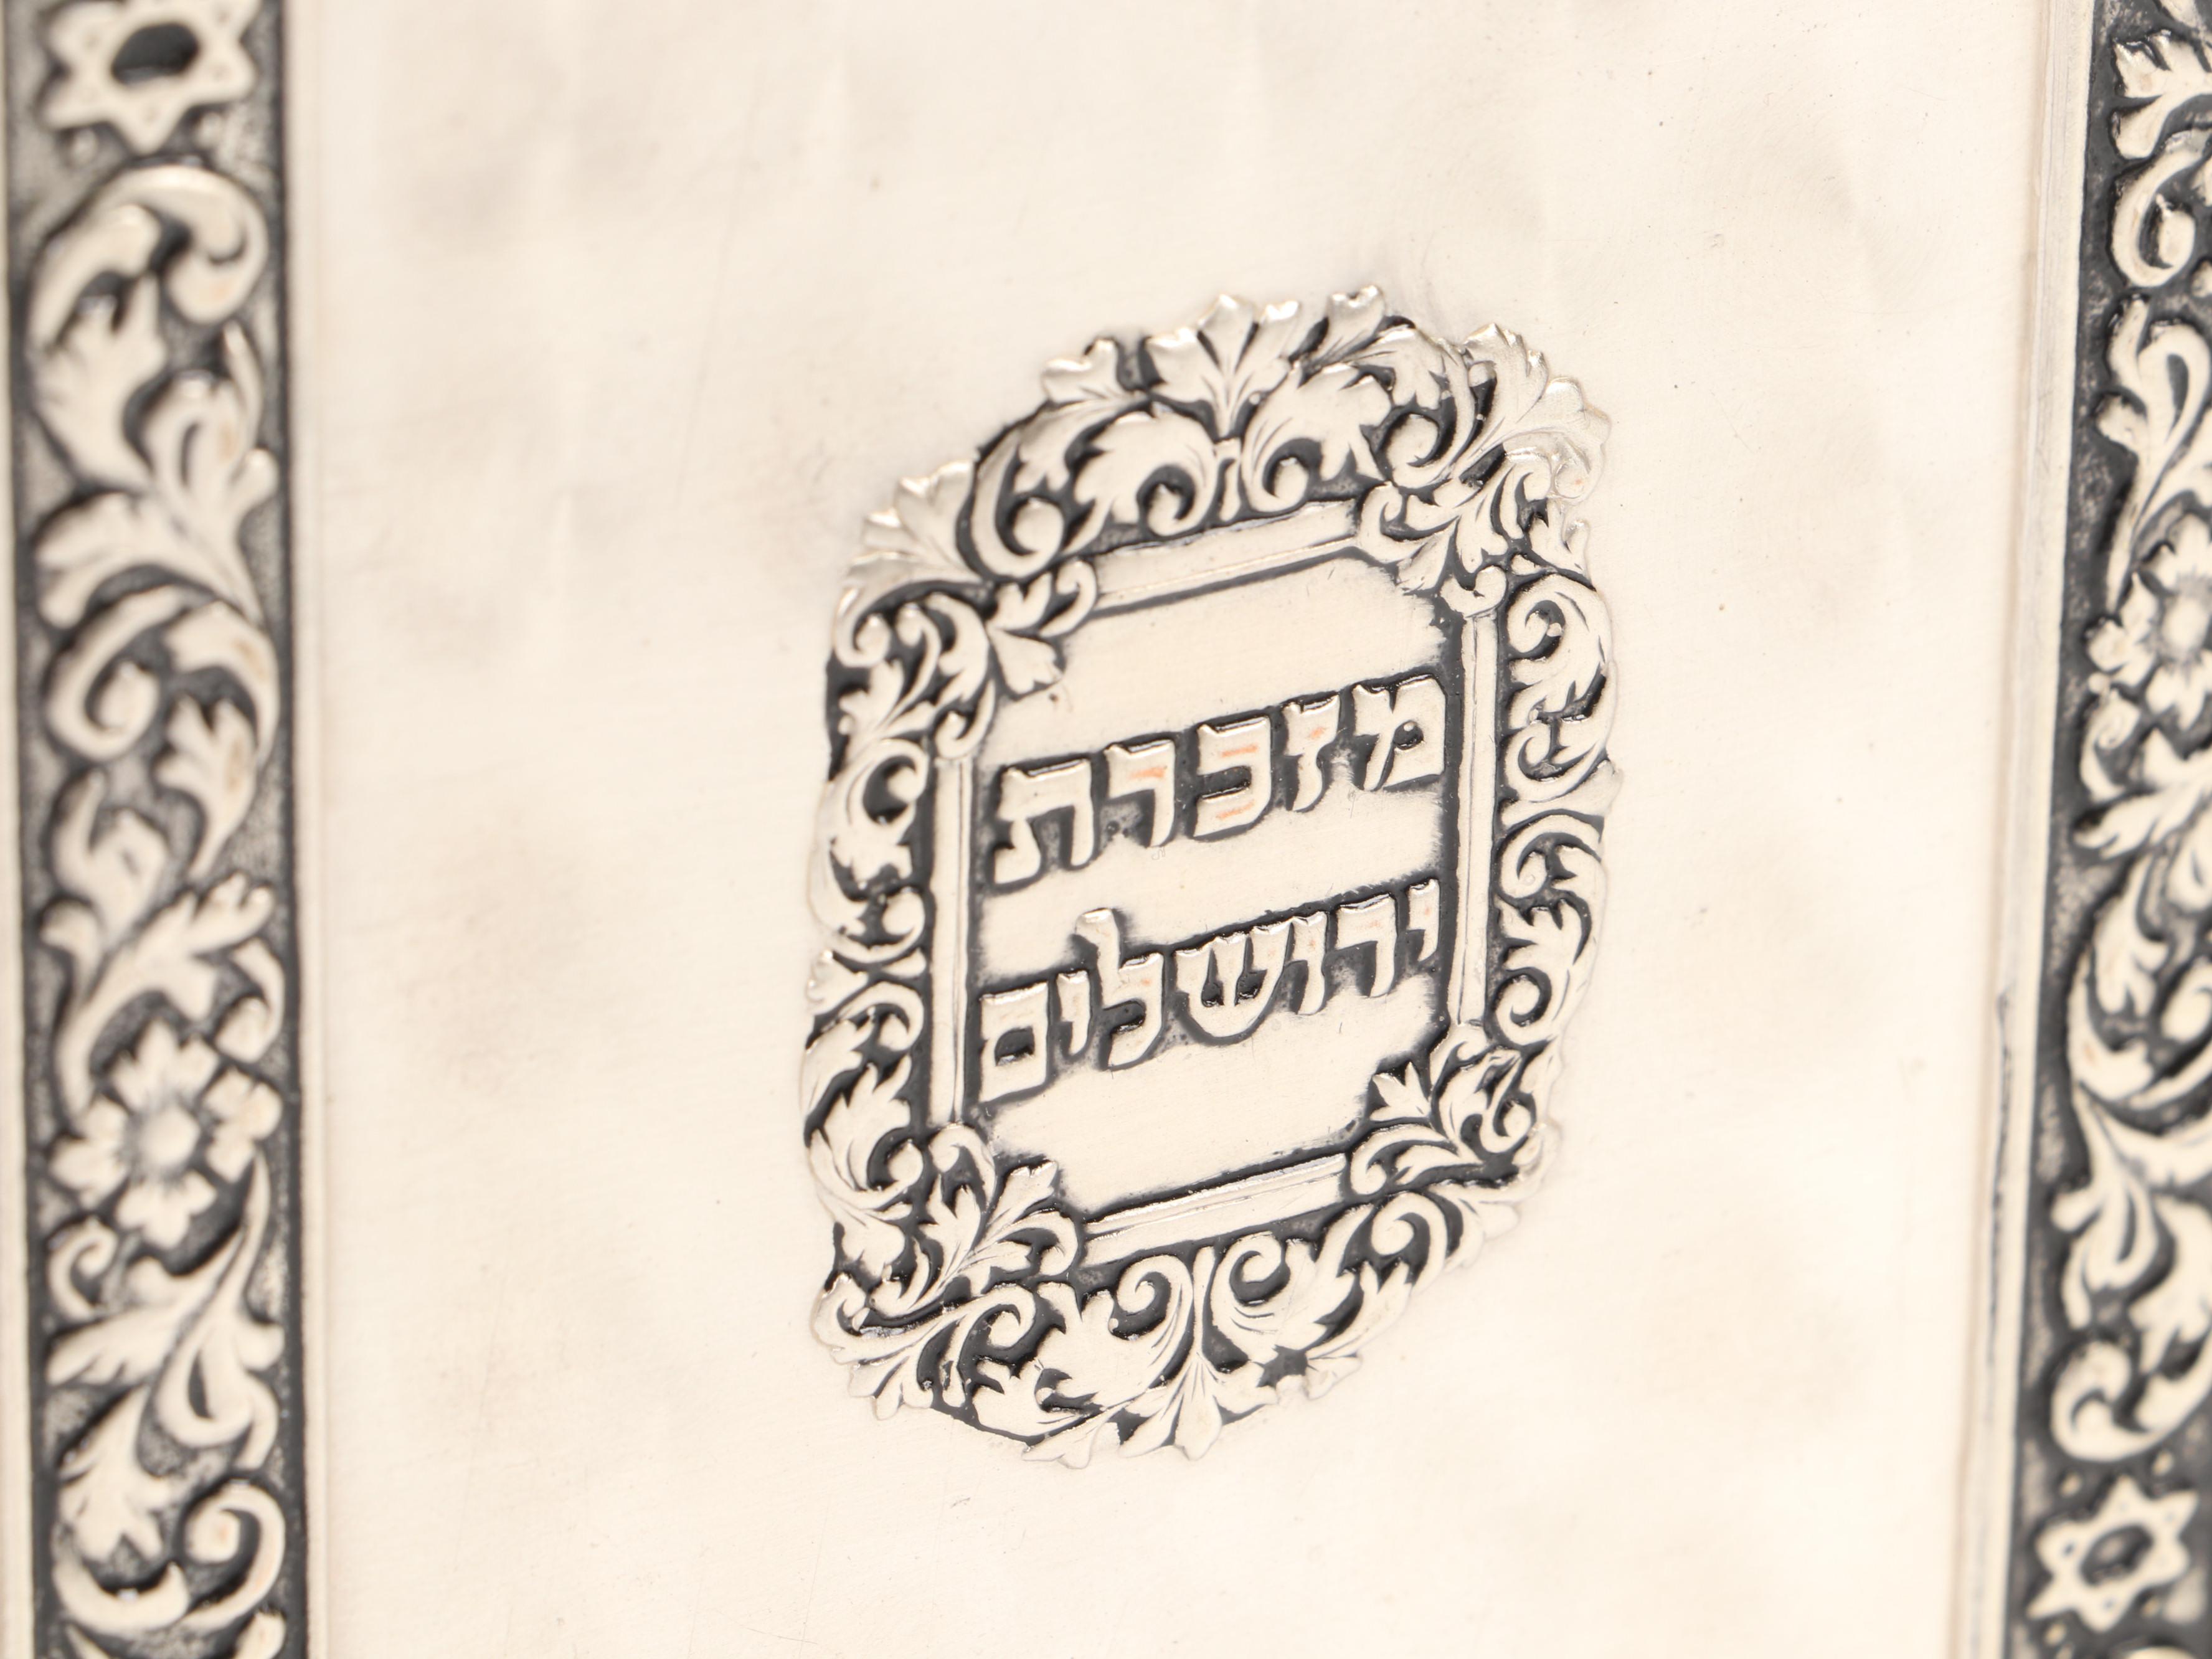 מזכרת
ירושלים